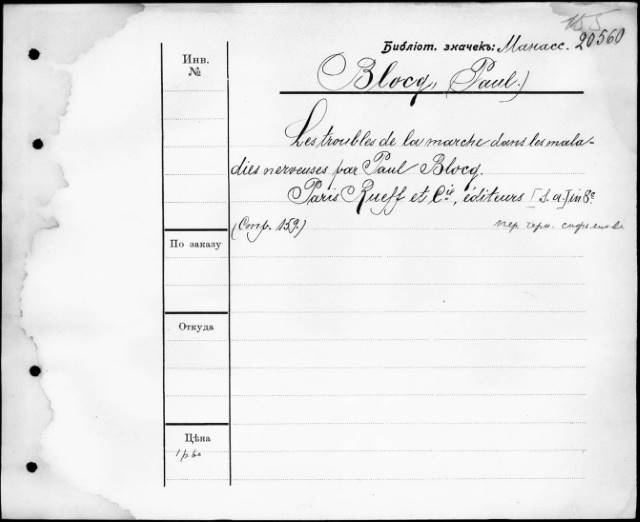 155
Библіот. значекъ: Манасс. 20560
Инв.
№
Blocq, (Paul.)
Les troubles de la marche dans les mala-
dies nerveuses par Paul Blocq.
Paris Rueff et Cie, éditeurs [s. a.] in 8º
(Comp. 159.)
пер. черн.
По заказу
Откуда
Цѣна
1 р 60